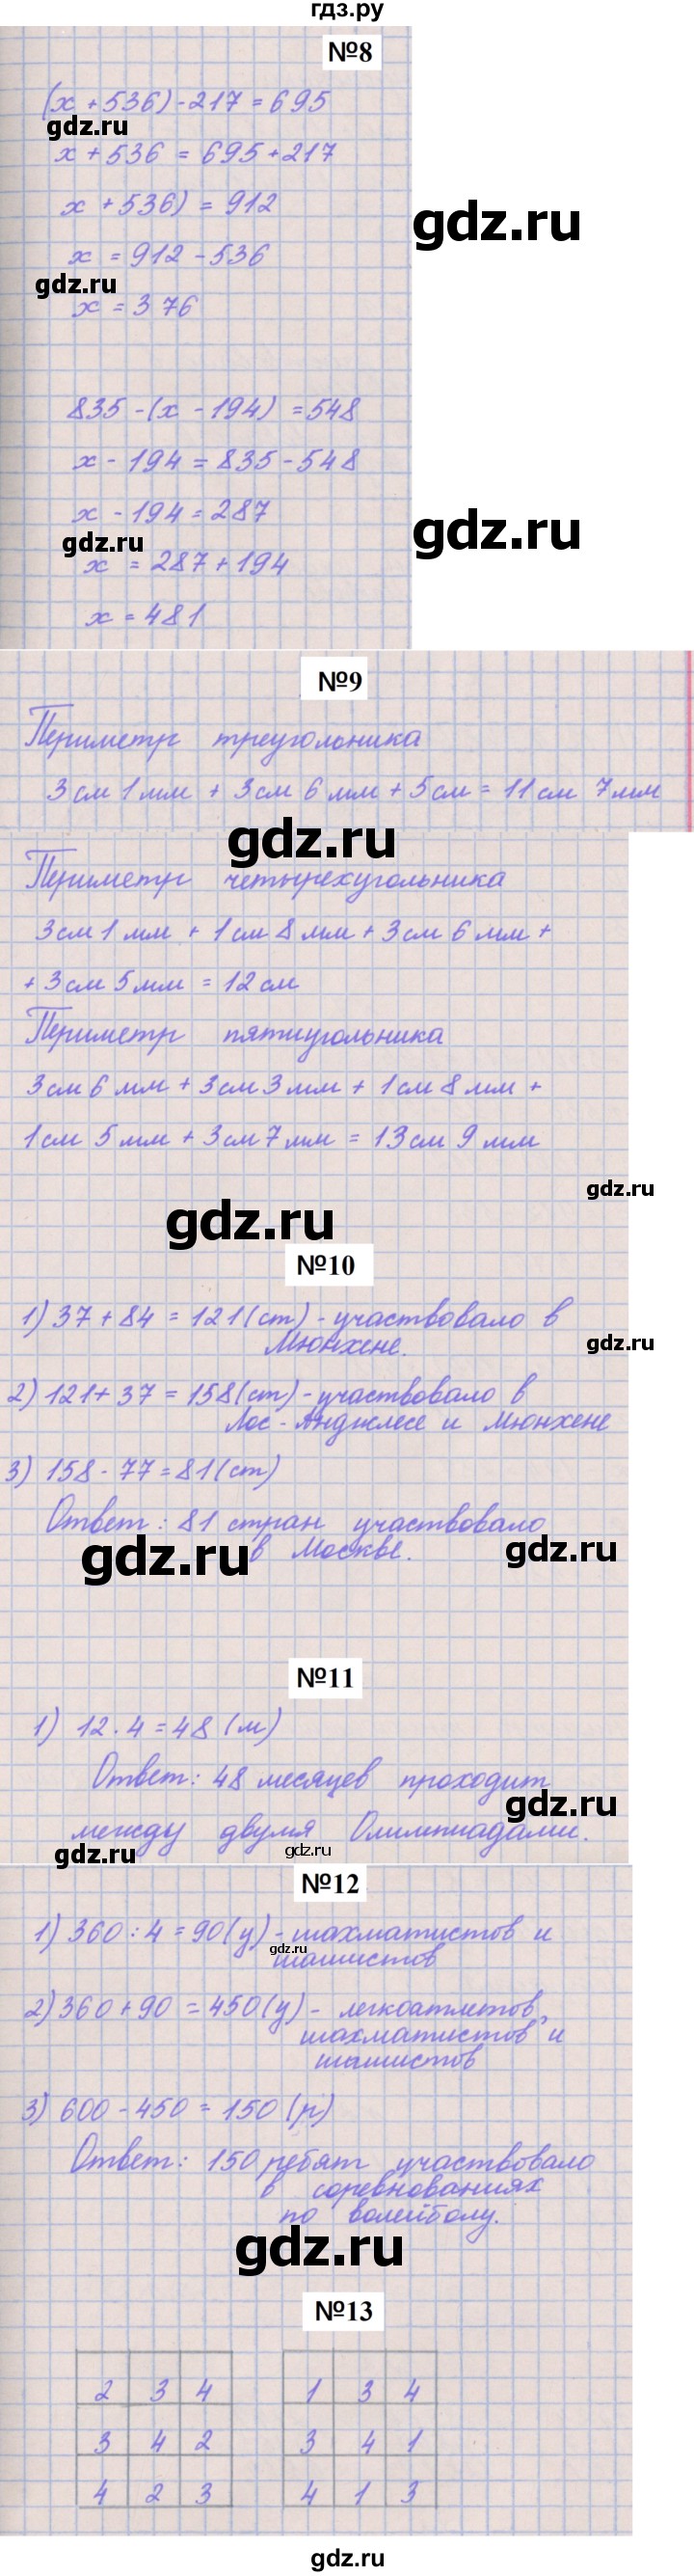 гдз.ру
№8
(х + 536) - 217 = 695
gdz.ru
х + 536 = 695 + 217
х + 536) = 912
gdz.ru
х = 912 - 536
gdz.ru
х = 376
835 - (х - 194) = 548
х - 194 = 835 - 548
х - 194 = 287
gdz.ru
gdz.ru
х = 287 + 194
х = 481
№9
Периметр треугольника
3 см 1 мм + 3 см 6 мм + 5 см = 11 см 7 мм
gdz.ru
Периметр четырехугольника
3 см 1 мм + 1 см 8 мм + 3 см 6 мм +
+ 3 см 5 мм = 12 см
Периметр пятиугольника
3 см 6 мм + 3 см 3 мм + 1 см 8 мм +
1 см 5 мм + 3 см 7 мм = 13 см 9 мм
gdz.ru
gdz.ru
№10
1) 37 + 84 = 121 (ст) - участвовало в
Мюнхене.
gdz.ru
2) 121 + 37 = 158 (ст) - участвовало в
Лос-Анджлесе и Мюнхене
3) 158 - 77 = 81 (ст)
Ответ: 81 стран участвовало
в Москве.
gdz.ru
gdz.ru
№11
1) 12 · 4 = 48 (м)
Ответ: 48 месяцев проходит
gdz.ru
между двумя Олимпиадами.
gdz.ru
gdz.ru
№12
1) 360 : 4 = 90 (у) - шахматистов и
gdz.ru
шашистов
2) 360 + 90 = 450 (у) - легкоатлетов,
шахматистов и
шашистов
3) 600 - 450 = 150 (р)
Ответ: 150 ребят участвовало
в соревнованиях
по волейболу.
gdz.ru
№13
2 3 4 1 3 4
3 4 2 3 4 1
4 2 3 4 1 3
gdz.ru